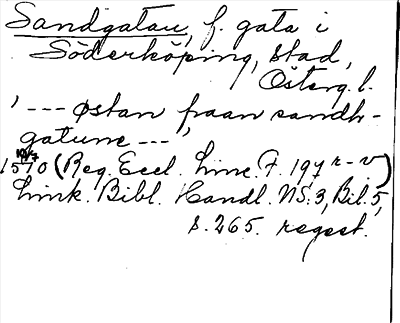 Sandgatan, f. gata i
Söderköping, stad,
Österg. l.
' --- østan fraan sandh-
gatunne --- '
1570 (Reg. Eccl. Linc. F. 197 r-v)
Link. Bibl. Handl. NS: 3, Bil. 5,
s. 265. regest.